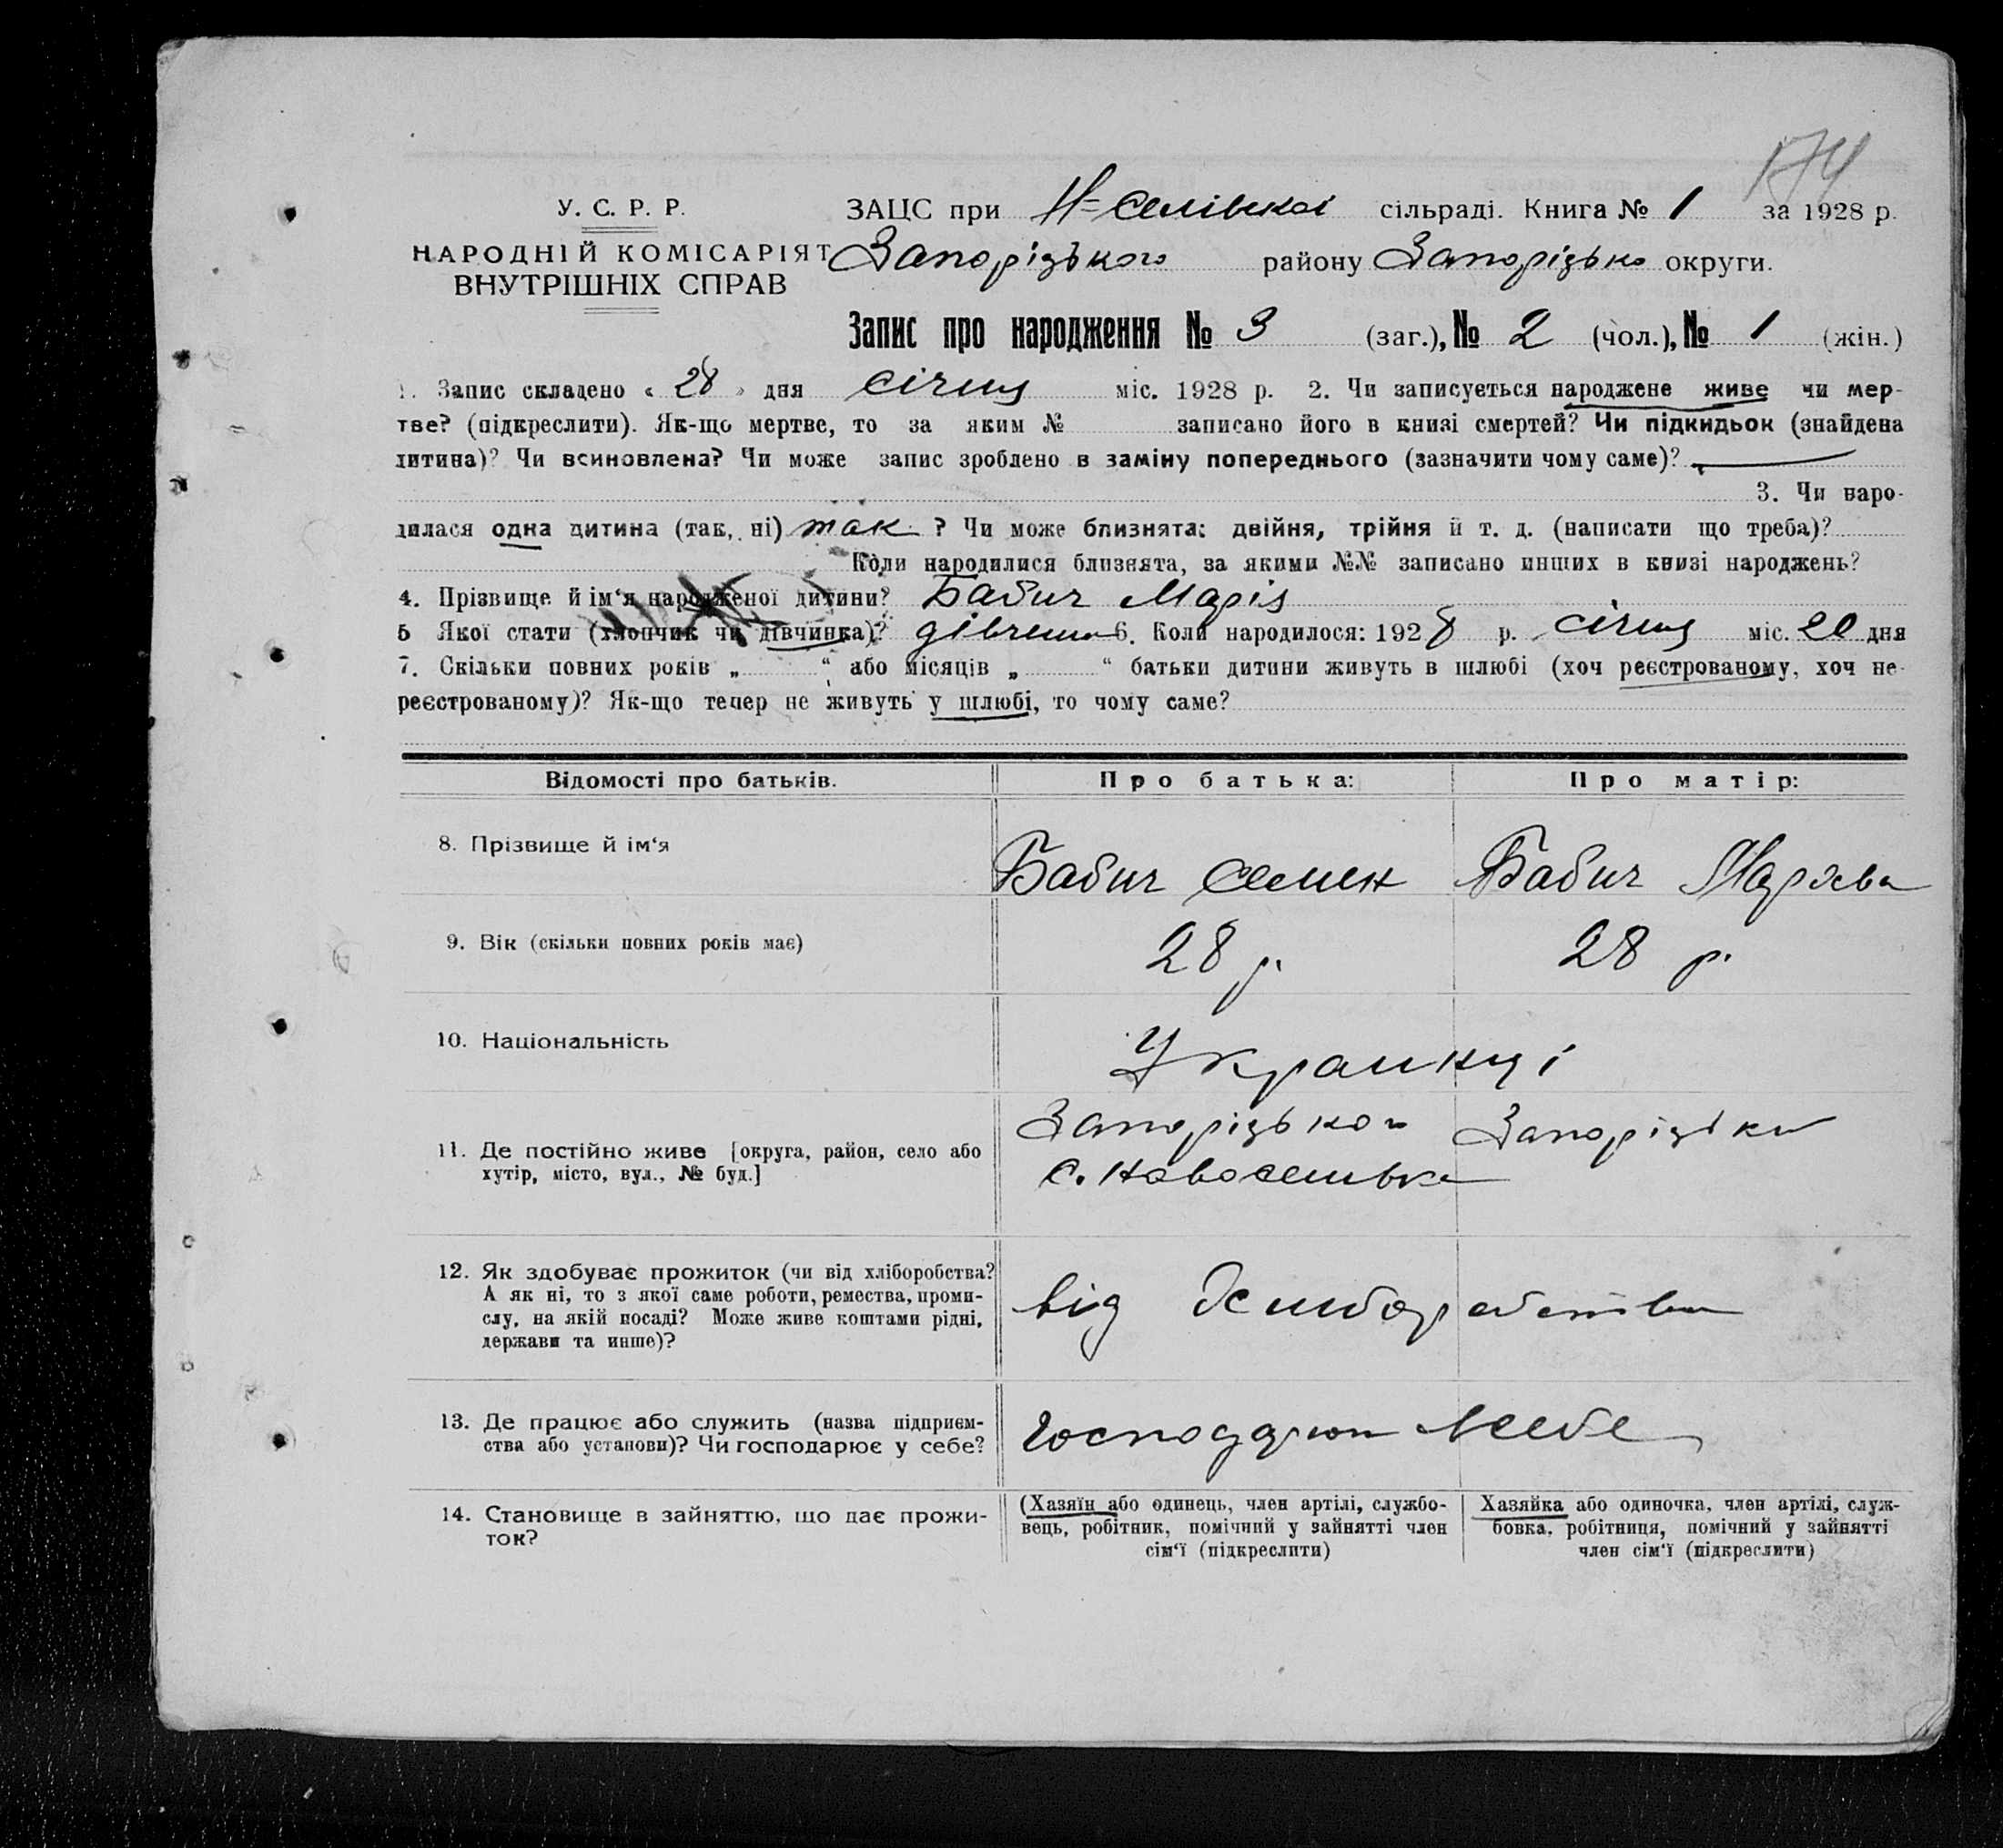 174
У. С. Р. Р.
ЗАЦС при Н=Селівскої сільраді. Книга № 1 за 1928 р.
НАРОДНІЙ КОМІСАРІЯТ
ВНУТРІШНІХ СПРАВ
Запорізького району Запорізько округи.
Запис про народження № 3 (заг.), № 2 (чол.), № 1 (жін.)
1. Запис складено « 28 » дня січня міс. 1928 р. 2. Чи записується народжене живе чи мер-
тве? (підкреслити). Як-що мертве, то за яким № записано його в книзі смертей? Чи підкидьок (знайдена
дитина)? Чи всиновлена? Чи може запис зроблено в заміну попереднього (зазначити чому саме)?
3. Чи наро-
дилася одна дитина (так, ні) так ? Чи може близнята: двійня, трійня й т. д. (написати що треба)?
Коли народилися близнята, за якими №№ записано инших в книзі народжень?
4. Прізвище й ім‘я народженої дитини? Бабич Марія
5 Якої стати (хлопчик чи дівчинка)? дівчина 6. Коли народилося: 1928 р. січня міс. 20 дня
7. Скільки повних років „ “ або місяців „ “ батьки дитини живуть в шлюбі (хоч реєстрованому, хоч не-
реєстрованому)? Як-що тепер не живуть у шлюбі, то чому саме?
Відомості про батьків. Про батька: Про матір:
8. Прізвище й ім‘я
Бабич Семен Бабич
9. Вік (скільки повних років має)
28 р. 28 р.
10. Національність
Украинці
11. Де постійно живе [округа, район, село або
хутір, місто, вул., № буд.]
Запорізького Запорізьки
с. Новоселивка
12. Як здобуває прожиток (чи від хліборобства?
А як ні, то з якої саме роботи, ремества, проми-
слу, на якій посаді? Може живе коштами рідні,
держави та инше)?
від Хлиборобства
13. Де працює або служить (назва підприєм-
ства або установи)? Чи господарює у себе?
у себе
14. Становище в зайняттю, що дає прожи-
ток?
(Хазяїн або одинець, член артілі, службо-
вець, робітник, помічний у зайнятті член
сім‘ї (підкреслити)
Хазяйка або одиночка, член артілі, служ-
бовка, робітниця, помічний у зайнятті
член сім‘ї (підкреслити)